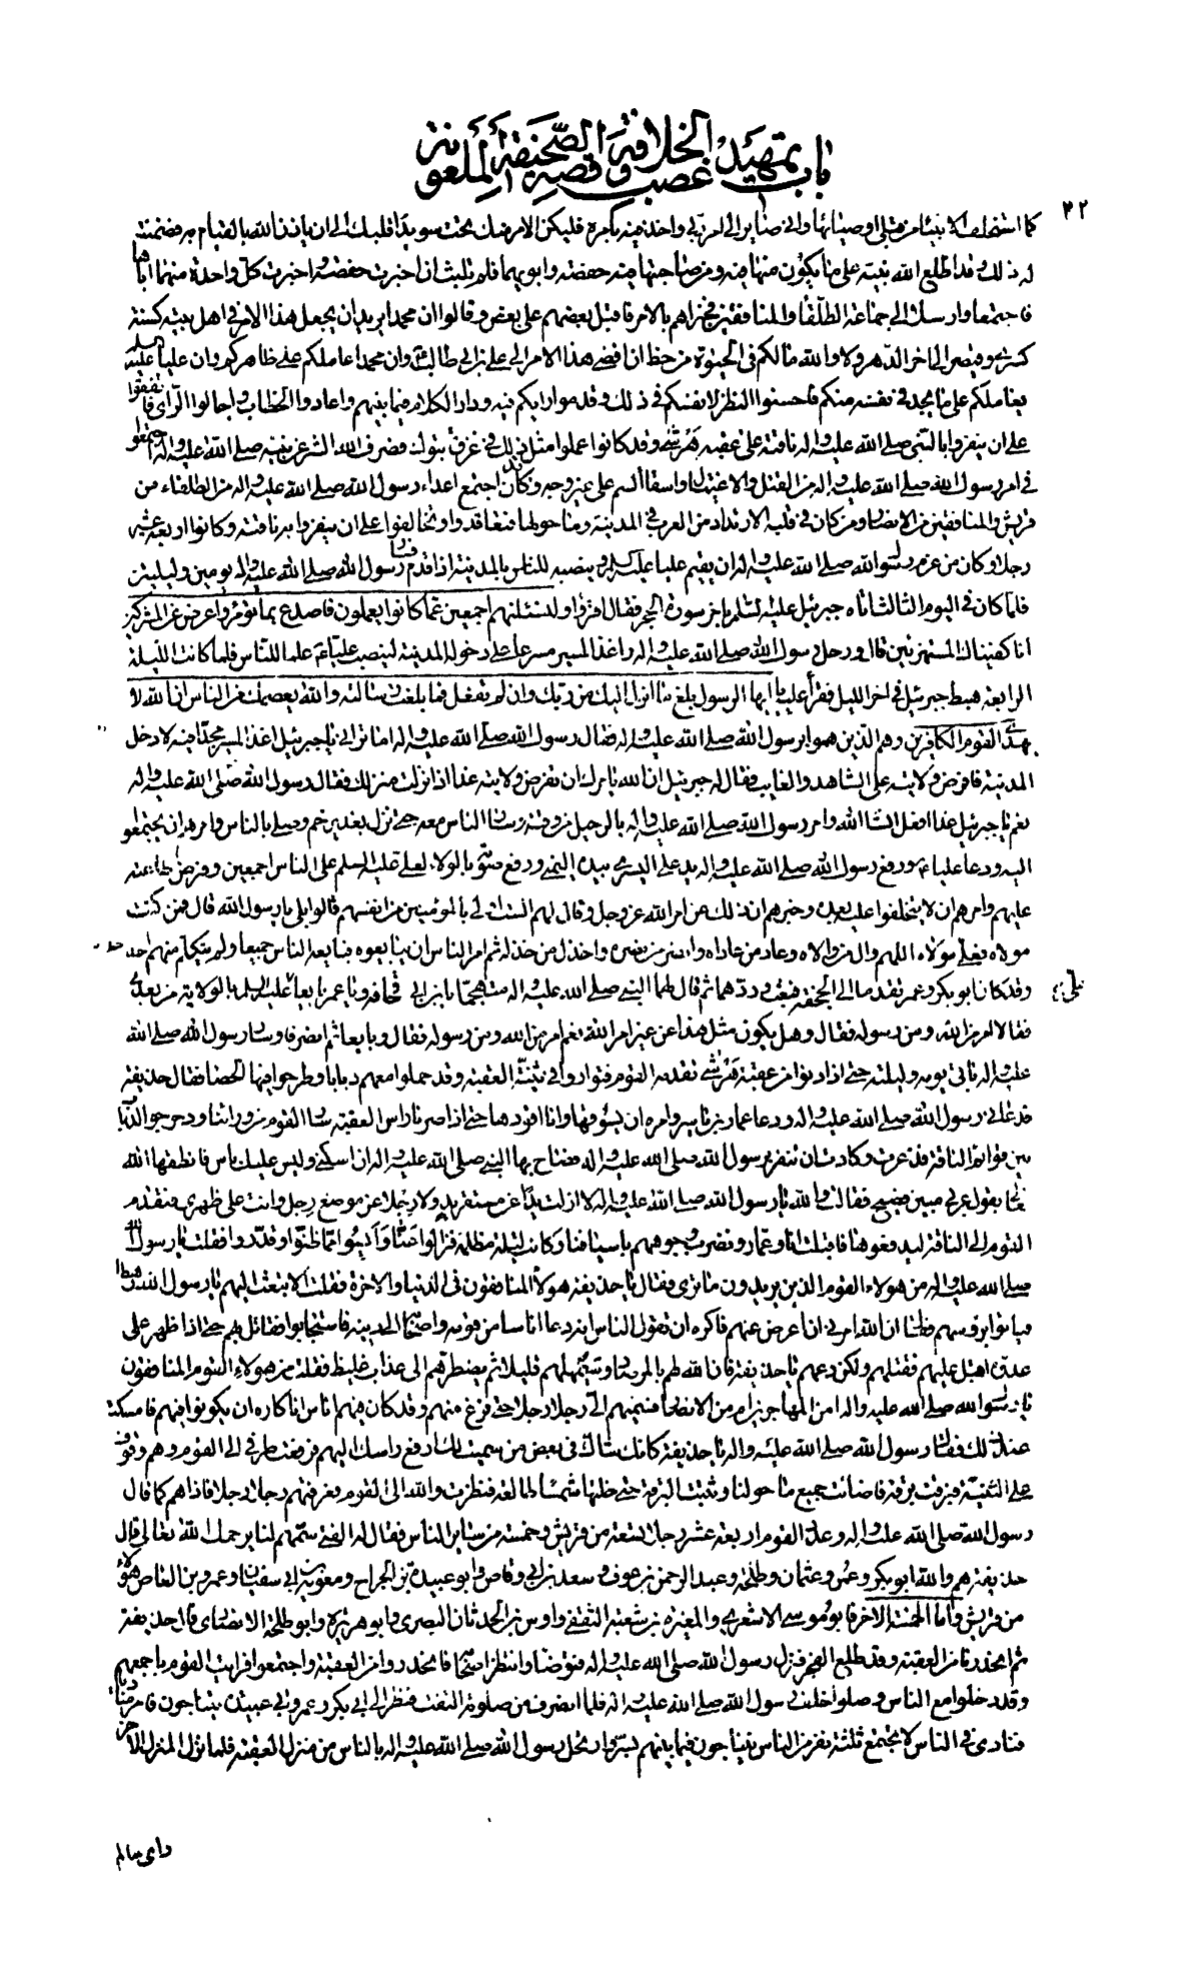 باب تمهيد غصب الخلافة وقصة الصحيفة الملعونة
٣٢
كما استخلفت الانبياء من قبلى اوصيائها وانى صاير الى امر ربى واخذ فيه بامره فليكن الامر منك تحت سويداء قلبك الى ان ياذن الله بالقيام به فضمنت
له ذلك وقد اطلع الله نبيه على ما يكون منها فيه ومن صاحبتها حفصة وابويهما فلم تلبث ان اخبرت حفصة واخبرت كل واحدة منهما اباها
فاجتمعا وارسلا الى جماعة الطلقاء والمنافقين فخبراهم بالامر فاقبل بعضهم على بعض وقالوا ان محمدا يريد ان يجعل هذا الامر فى اهل بيته كسنة
كسرى وقيصر الى اخر الدهر ولا والله ما لكم فى الحيوة من حظ ان افضى هذا الامر الى على بن ابى طالب وان محمدا عاملكم على ظاهركم وان عليا
يعاملكم على ما يجد فى نفسه منكم فاحسنوا النظر لانفسكم فى ذلك وقدموا رايكم فيه ودار الكلام فيما بينهم واعادوا الخطاب واجالوا الراى فاتفقوا
على ان ينفروا بالنبى صلى الله عليه واله ناقته على عقبة هرشى وقد كانوا عملوا مثل ذلك فى غزوة تبوك فصرف الله الشر عن نبيه صلى الله عليه واله اجتمعوا
فى امر رسول الله صلى الله عليه واله من القتل والاغتيال واسقاء السم على غير وجه وقد كان اجتمع اعداء رسول الله صلى الله عليه واله من الطلقاء من
قريش والمنافقين من الانصار ومن كان فى قلبه الارتداد من العرب فى المدينة وما حولها فتعاقدوا وتحالفوا على ان ينفروا به ناقته وكانوا اربعة عشر
رجلا وكان من عزم رسول الله صلى الله عليه واله ان يقيم عليا عليه السلم وينصبه للناس بالمدينة اذا قدم فسار رسول الله صلى الله عليه واله يومين وليلتين
فلما كان فى اليوم الثالث اتاه جبرئيل عليه السلم باخر سورة الحجر فقال اقرأ ولنسئلنهم اجمعين عما كانوا يعملون فاصدع بما تؤمر واعرض عن المشركين
انا كفيناك المستهزئين قال ورحل رسول الله صلى الله عليه واله واغذ السير مسرعا على دخوله المدينة لينصب عليا ع علما للناس فلما كانت الليلة
الرابعة هبط جبرئيل فى اخر الليل فقرأ عليه يا ايها الرسول بلغ ما انزل اليك من ربك وان لم تفعل فما بلغت رسالته والله يعصمك من الناس ان الله لا
يهدى القوم الكافرين وهم الذين هموا برسول الله صلى الله عليه واله فقال رسول الله صلى الله عليه واله اما ترانى يا جبرئيل اغذ السير مجدا فيه لادخل
المدينة فافرض ولايته على الشاهد والغايب فقال له جبرئيل ان الله يامرك ان تفرض ولايته غدا اذا نزلت منزلك فقال رسول الله صلى الله عليه واله
نعم يا جبرئيل غدا افعل انشاء الله وامر رسول الله صلى الله عليه واله بالرحيل من وقته وسار الناس معه حتى نزل بغدير خم وصلى بالناس وامرهم ان يجتمعوا
اليه ودعا عليا ع ورفع رسول الله صلى الله عليه واله يد على اليسرى بيده اليمنى ورفع صوته بالولاء لعلى عليه السلم على الناس اجمعين وفرض طاعته
عليهم وامرهم ان لا يتخلفوا عليه بعده وخبرهم ان ذلك عن امر الله عز وجل وقال لهم الست اولى بالمؤمنين من انفسهم قالوا بلى يا رسول الله قال فمن كنت
مولاه فعلى مولاه اللهم وال من والاه وعاد من عاداه وانصر من نصره واخذل من خذله ثم امر الناس ان يبايعوه فبايعه الناس جميعا ولم يتكلم منهم احد
وقد كان ابو بكر وعمر تقدما الى الجحفة فبعث وردهما ثم قال لهما النبى صلى الله عليه واله متهجما يا بن ابى قحافة ويا عمر بايعا عليا بالولاية من بعدى
فقالا امر من الله ومن رسوله فقال وهل يكون مثل هذا عن غير امر الله نعم امر من الله ومن رسوله فقال وبايعا ثم انصرفا وسار رسول الله صلى الله
عليه واله باقى يومه وليلته حتى اذا دنوا من عقبة هرشى تقدمه القوم فتواروا فى ثنية العقبة وقد حملوا معهم دبابا وطرحوا فيها الحصا فقال حذيفة
فدعانى رسول الله صلى الله عليه واله ودعا عمار بن ياسر وامره ان يسوقها وانا اقودها حتى اذا صرنا راس العقبة ثار القوم من ورائنا ودحرجوا الدباب
بين قوائم الناقة فذعرت وكادت ان تنفر برسول الله صلى الله عليه واله فصاح بها النبى صلى الله عليه واله ان اسكنى وليس عليك باس فانطقها الله
تعالى بقول عربى مبين فصيح فقالت والله يا رسول الله صلى الله عليه واله لا ازلت يدا عن مستقر يد ولا رجلا عن موضع رجل وانت على ظهرى فتقدم
القوم الى الناقة ليدفعوها فاقبلت انا وعمار ونضرب وجوههم باسيافنا وكانت ليلة مظلمة فزالوا عنا وايسوا مما ظنوا وقدروا فقلت يا رسول الله
صلى الله عليه واله من هولاء القوم الذين يريدون ما ترى فقال يا حذيفة هولاء المنافقون فى الدنيا والاخرة فقلت الا تبعث اليهم يا رسول الله رهطا
فياتوا برؤسهم فقال ان الله امرنى ان اعرض عنهم فاكره ان تقول الناس انه دعا اناسا من قومه واصحابه الى دينه فاستجابوا فقاتل بهم حتى اذا ظهر على
عدوه اقبل عليهم فقتلهم ولكن دعهم يا حذيفة فان الله لهم بالمرصاد وسيمهلهم قليلا ثم يضطرهم الى عذاب غليظ فقلت من هولاء القوم المنافقون
يا رسول الله صلى الله عليه واله امن المهاجرين ام من الانصار فسماهم لى رجلا رجلا حتى فرغ منهم وقد كان فيهم اناس انا كاره ان يكونوا فيهم فامسكت
عند ذلك فقال رسول الله صلى الله عليه واله يا حذيفة كانك شاك فى بعض من سميت لك ارفع راسك اليهم فرفعت طرفى الى القوم وهم وقوف
على الثنية فبرقت برقة فاضائت جميع ما حولنا وثبتت البرقة حتى خلتها شمسا طالعة فنظرت والله الى القوم فعرفتهم رجلا رجلا فاذا هم كما قال
رسول الله صلى الله عليه واله وعدد القوم اربعة عشر رجلا تسعة من قريش وخمسة من ساير الناس فقال له الفتى سمهم لنا يرحمك الله تعالى قال
حذيفة هم والله ابو بكر وعمر وعثمان وطلحة وعبد الرحمن بن عوف وسعد بن ابى وقاص وابو عبيدة بن الجراح ومعوية بن ابى سفيان وعمرو بن العاص هؤلاء
من قريش واما الخمسة الاخر فابو موسى الاشعرى والمغيرة بن شعبة الثقفى واوس بن الحدثان البصرى وابو هريرة وابو طلحة الانصارى قال حذيفة
ثم انحدرنا من العقبة وقد طلع الفجر فنزل رسول الله صلى الله عليه واله فتوضا وانتظر اصحابه فانحدروا من العقبة واجتمعوا فرايت القوم باجمعهم
وقد دخلوا مع الناس وصلوا خلف رسول الله صلى الله عليه واله فلما انصرف من صلوته التفت فنظر الى ابى بكر وعمر وابى عبيدة يتناجون فامر مناديا
فنادى فى الناس لا يجتمع ثلثة نفر من الناس يتناجون فيما بينهم بسر وارتحل رسول الله صلى الله عليه واله بالناس من منزل العقبة فلما نزل المنزل الاخر
راى سالم